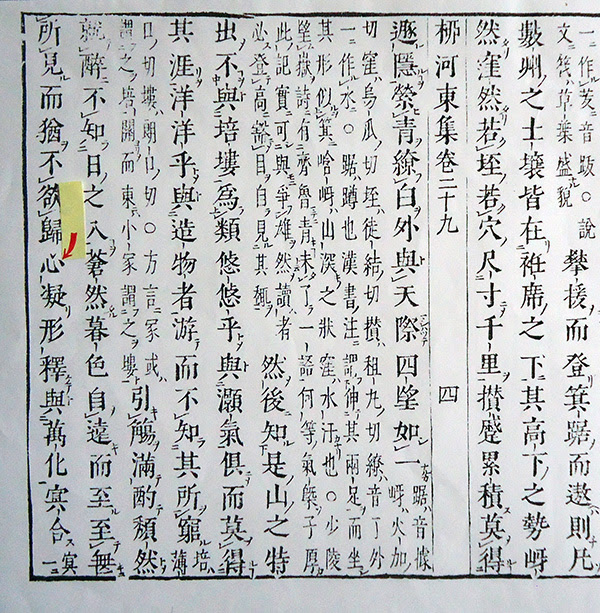 一作茇音跋○說
文筏草葉盛貌
攀援而登箕踞而遨則凡
數州之土壤皆在衽席之下其高下之勢岈
然窪然若垤若穴尺寸千里攢蹙累積莫得
柳河東集卷二十九 四
遯隱縈青繚白外與天際四望如一
踞音據
岈火加
切窪烏瓜切垤徒結切攢徂丸切繚音了外
一作水○踞蹲也漢書注謂伸其兩足而坐
其形似箕唅岈山深之狀窪水汙也○少陵
望嶽詩有齊魯青未了一語何等氣槩子厚
此記實可與爭雄然讀者
必登高豁目自見其
然後知是山之特
出不與培塿爲類悠悠乎與灝氣俱而莫得
其涯洋洋乎與造物者游而不知其所窮
培
薄
口切塿朗口切○方言冢或
謂之培關而東小冢謂之塿
引觴滿酌頹然
就醉不知日之入蒼然暮色自遠而至至無
所見而猶不欲歸心凝形釋與萬化冥合
冥
一